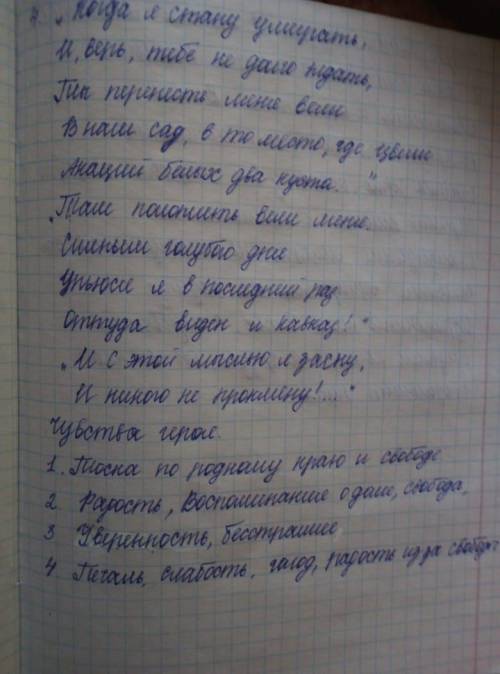 4. „Когда я стану умирать,
И, верь, тебе не долго ждать,
Ты перенесть меня вели
В наш сад, в то место, где цвели
Акаций белых два куста..."
„Там положить вели меня.
Сияньем голубого дня
Упьюся я в последний раз
Оттуда виден и Кавказ!"
„И с этой мыслью я засну,
И никого не прокляну!..."
Чувства героя.
1. Тоска по родному краю и свободе
2. Радость, Воспоминание о доме, свобода,
3 Уверенность, бесстрашие
4 Печаль, слабость, голод, радость из за свободы